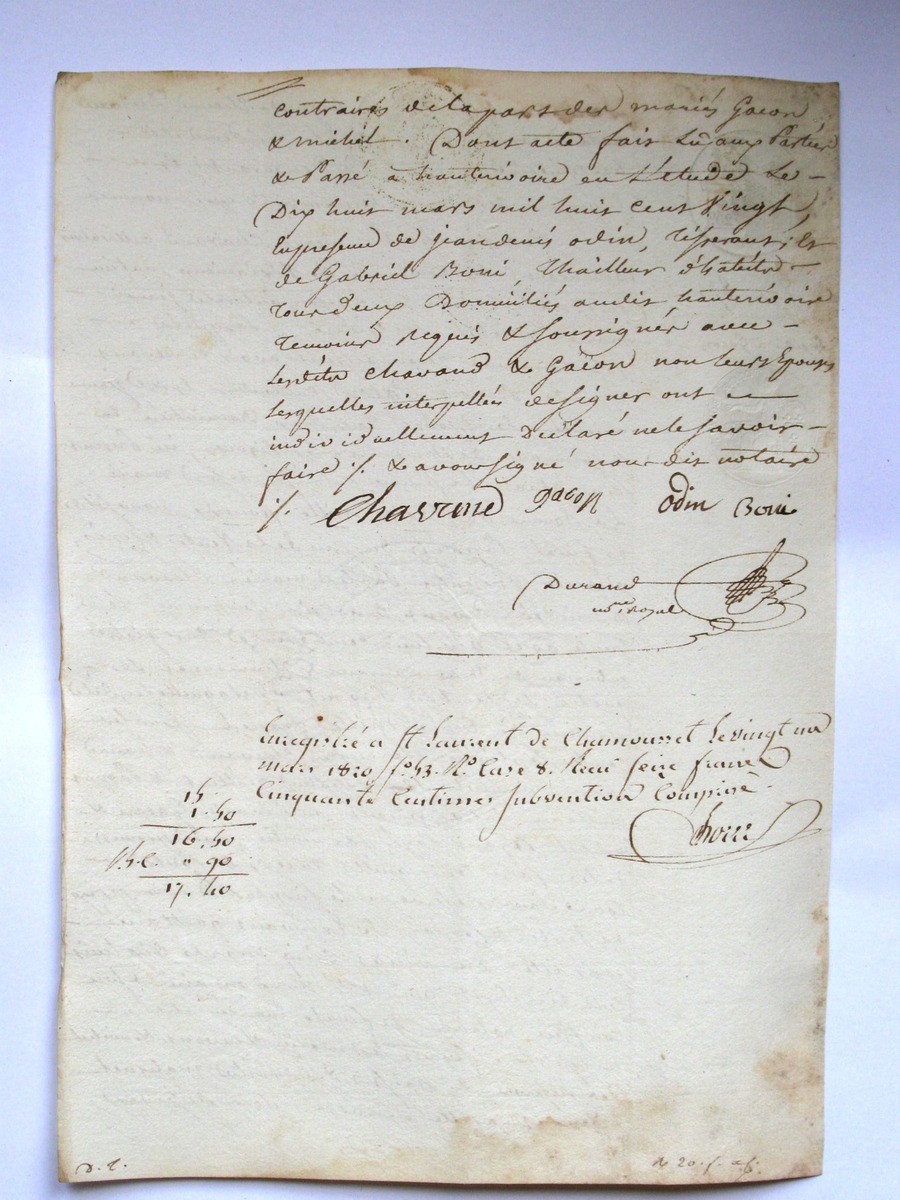 contraires de la part des mariés Gacon
& michel. Dont acte fait Lu aux Parties
& Passé à hauterivoire en L'etude Le
Dix huit mars mil huit cent Vingt,
En presence de jean denis odin, Tisserant, Et
de Gabriel Boni Thailleur d'habits
Tous deux Domiciliés audit hauterivoire
Temoins requis & soussignés avec
Lesdits Chavand & Gacon non leurs Epouses
Lesquelles interpellés de signer ont
individuellement Déclaré ne le savoir
faire /. & avons signé nous dit notaire
/. Chavand gacon odin Boni
Durand
nre royal
Enregistré a St Laurent de Chamousset Le vingt
mars 1820 fo. 53. Ro. Case 8. Recu seize francs
Cinquante Centimes subvention Comprise
15
1.50
16.50
" 90
17.40